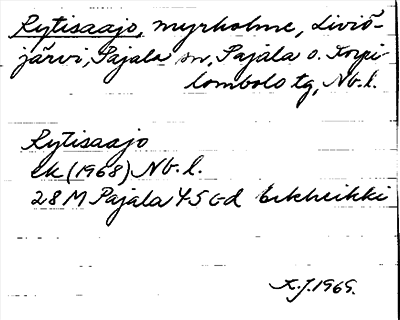 Rytisaajo, myrholme, Liviö-
järvi, Pajala sn, Pajala o. Korpi-
lombolo tg, Nb.l.
Rytisaajo
ek (1968) Nb.l.
28M Pajala 45 Erkheikki
K.J. 1969.